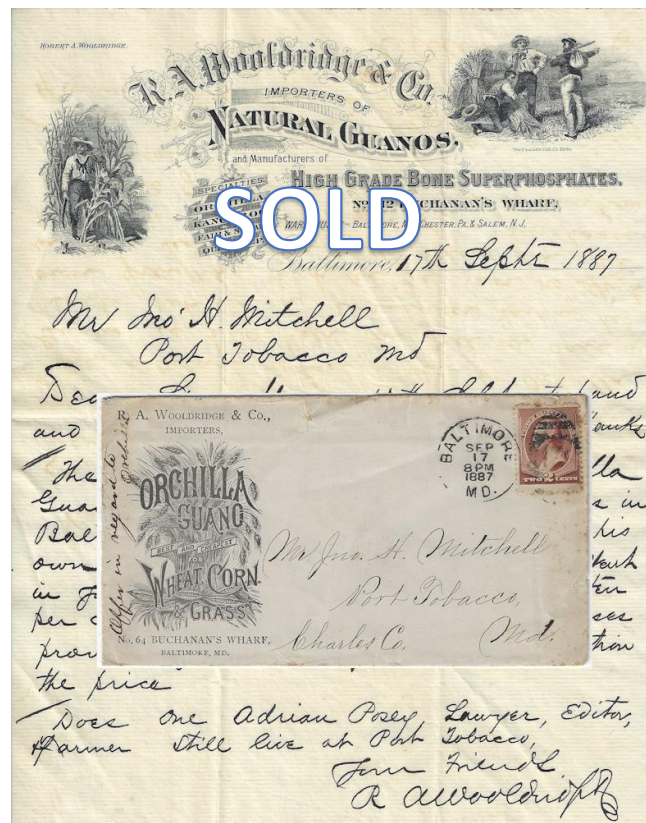 ROBERT A. WOOLDRIDGE.
R. A. Wooldridge & Co.
IMPORTERS OF
NATURAL GUANOS,
and Manufacturers of
HIGH GRADE BONE SUPERPHOSPHATES.
SPECIALTIES
BUCHANAN'S WHARF,
BALTIMORE, PA. & SALEM, N.J.
SOLD
Baltimore, 17th Septr 1887
Mr Jno H. Mitchell
Port Tobacco Md
and
The
own
in
per
the price
Does one Adrian Posey, Lawyer, Editor,
Farmer still live at Port Tobacco,
Your Friend
R A Wooldridge
R. A. WOOLDRIDGE & CO.,
IMPORTERS,
ORCHILLA
GUANO
BEST AND CHEAPEST
WHEAT, CORN
& GRASS
No. 64 BUCHANAN'S WHARF,
BALTIMORE, MD.
Offer in regard to Orchilla
BALTIMORE
SEP
17
8PM
1887
MD.
TWO 2 CENTS
Mr Jno. H. Mitchell
Port Tobacco,
Charles Co. Md.